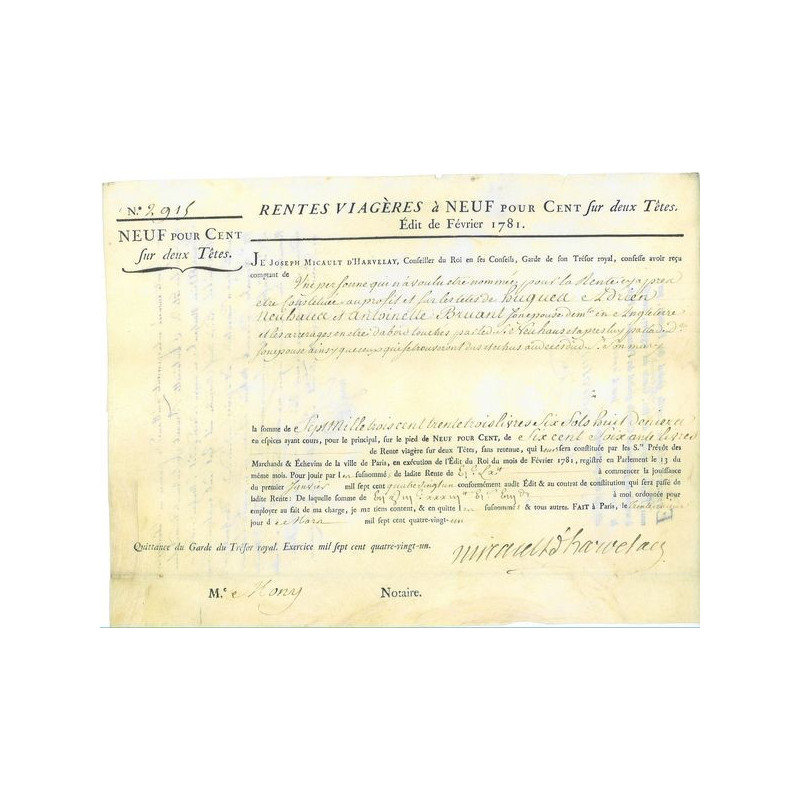 N.º 2915
NEUF POUR CENT
sur deux Têtes.
RENTES VIAGÈRES à NEUF POUR CENT sur deux Têtes.
Édit de Février 1781.
JE JOSEPH MICAULT D'HARVELAY, Conseiller du Roi en ses Conseils, Garde de son Trésor royal, confesse avoir reçu
comptant de Une personne qui n'a voulu être nommée pour la Rente cy après
être constituée au profit et sur les têtes de Adrien
et Antoinette Bruant son epouse demt en Angleterre
et les arrerages en être d'abord touchés par led. S. et après luy par lad. De
son epouse ainsy que ceux qui se trouveront dus et echus au deces dud. S. son mary
la somme de Sept Mille trois cent trente trois livres Six Sols huit Deniers
en espices ayant cours, pour le principal, sur le pied de NEUF POUR CENT, de Six cent Soixante livres
de Rente viagère sur deux Têtes, sans retenue, qui leur sera constituée par les S.rs Prévôt des
Marchands & Échevins de la ville de Paris, en exécution de l'Édit du Roi du mois de Février 1781, registré en Parlement le 13 du
même mois. Pour jouir par de ladite Rente de à commencer la jouissance
du premier Janvier mil sept cent quatrevingt un conformément audit Édit & au contrat de constitution qui sera passé de
ladite Rente: De laquelle somme de à moi ordonnée pour
employer au fait de ma charge, je me tiens content, & en quitte susnommé & tous autres. FAIT à Paris, le
jour de Mars mil sept cent quatre-vingt-un
Quittance du Garde du Trésor royal. Exercice mil sept cent quatre-vingt-un.
micault d'harvelay
M.e Mony Notaire.